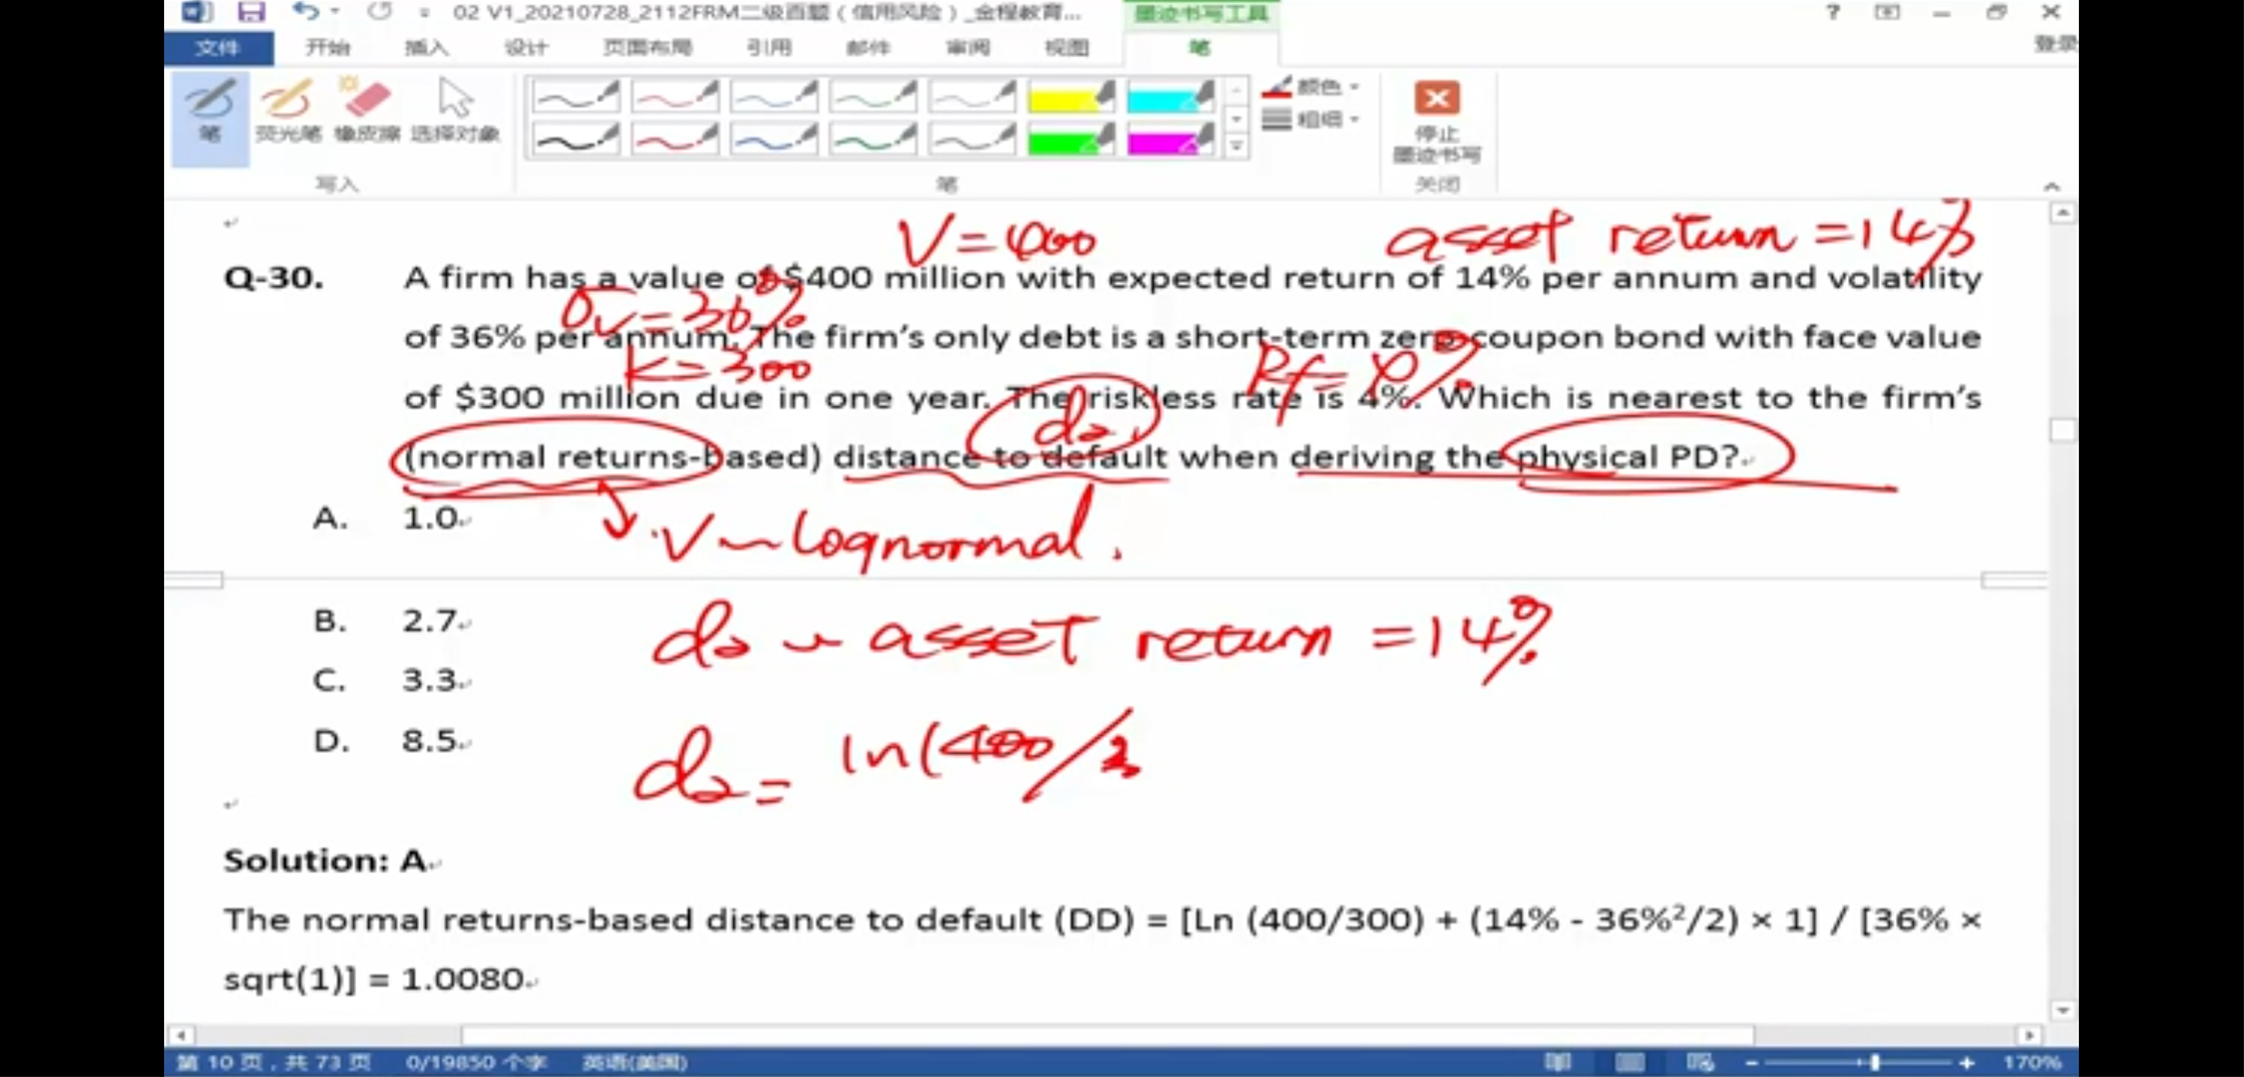 02 V1_20210728_2112FRM二级百题（信用风险）_金程教育...
墨迹书写工具
?
文件 开始 插入 设计 页面布局 引用 邮件 审阅 视图 笔 登录
笔 荧光笔 橡皮擦 选择对象
颜色
粗细
停止
墨迹书写
写入 笔 关闭
V=400 asset return =14%
Q-30. A firm has a value of $400 million with expected return of 14% per annum and volatility
σv=36%
of 36% per annum. The firm's only debt is a short-term zero-coupon bond with face value
K=300 Rf=4%
of $300 million due in one year. The riskless rate is 4%. Which is nearest to the firm's
d2
(normal returns-based) distance to default when deriving the physical PD?
A. 1.0
V~lognormal.
B. 2.7
d2 ~ asset return =14%
C. 3.3
D. 8.5
d2= ln(400/3
Solution: A
The normal returns-based distance to default (DD) = [Ln (400/300) + (14% - 36%²/2) × 1] / [36% ×
sqrt(1)] = 1.0080
第 10 页，共 73 页 0/19850 个字 英语(美国) 170%